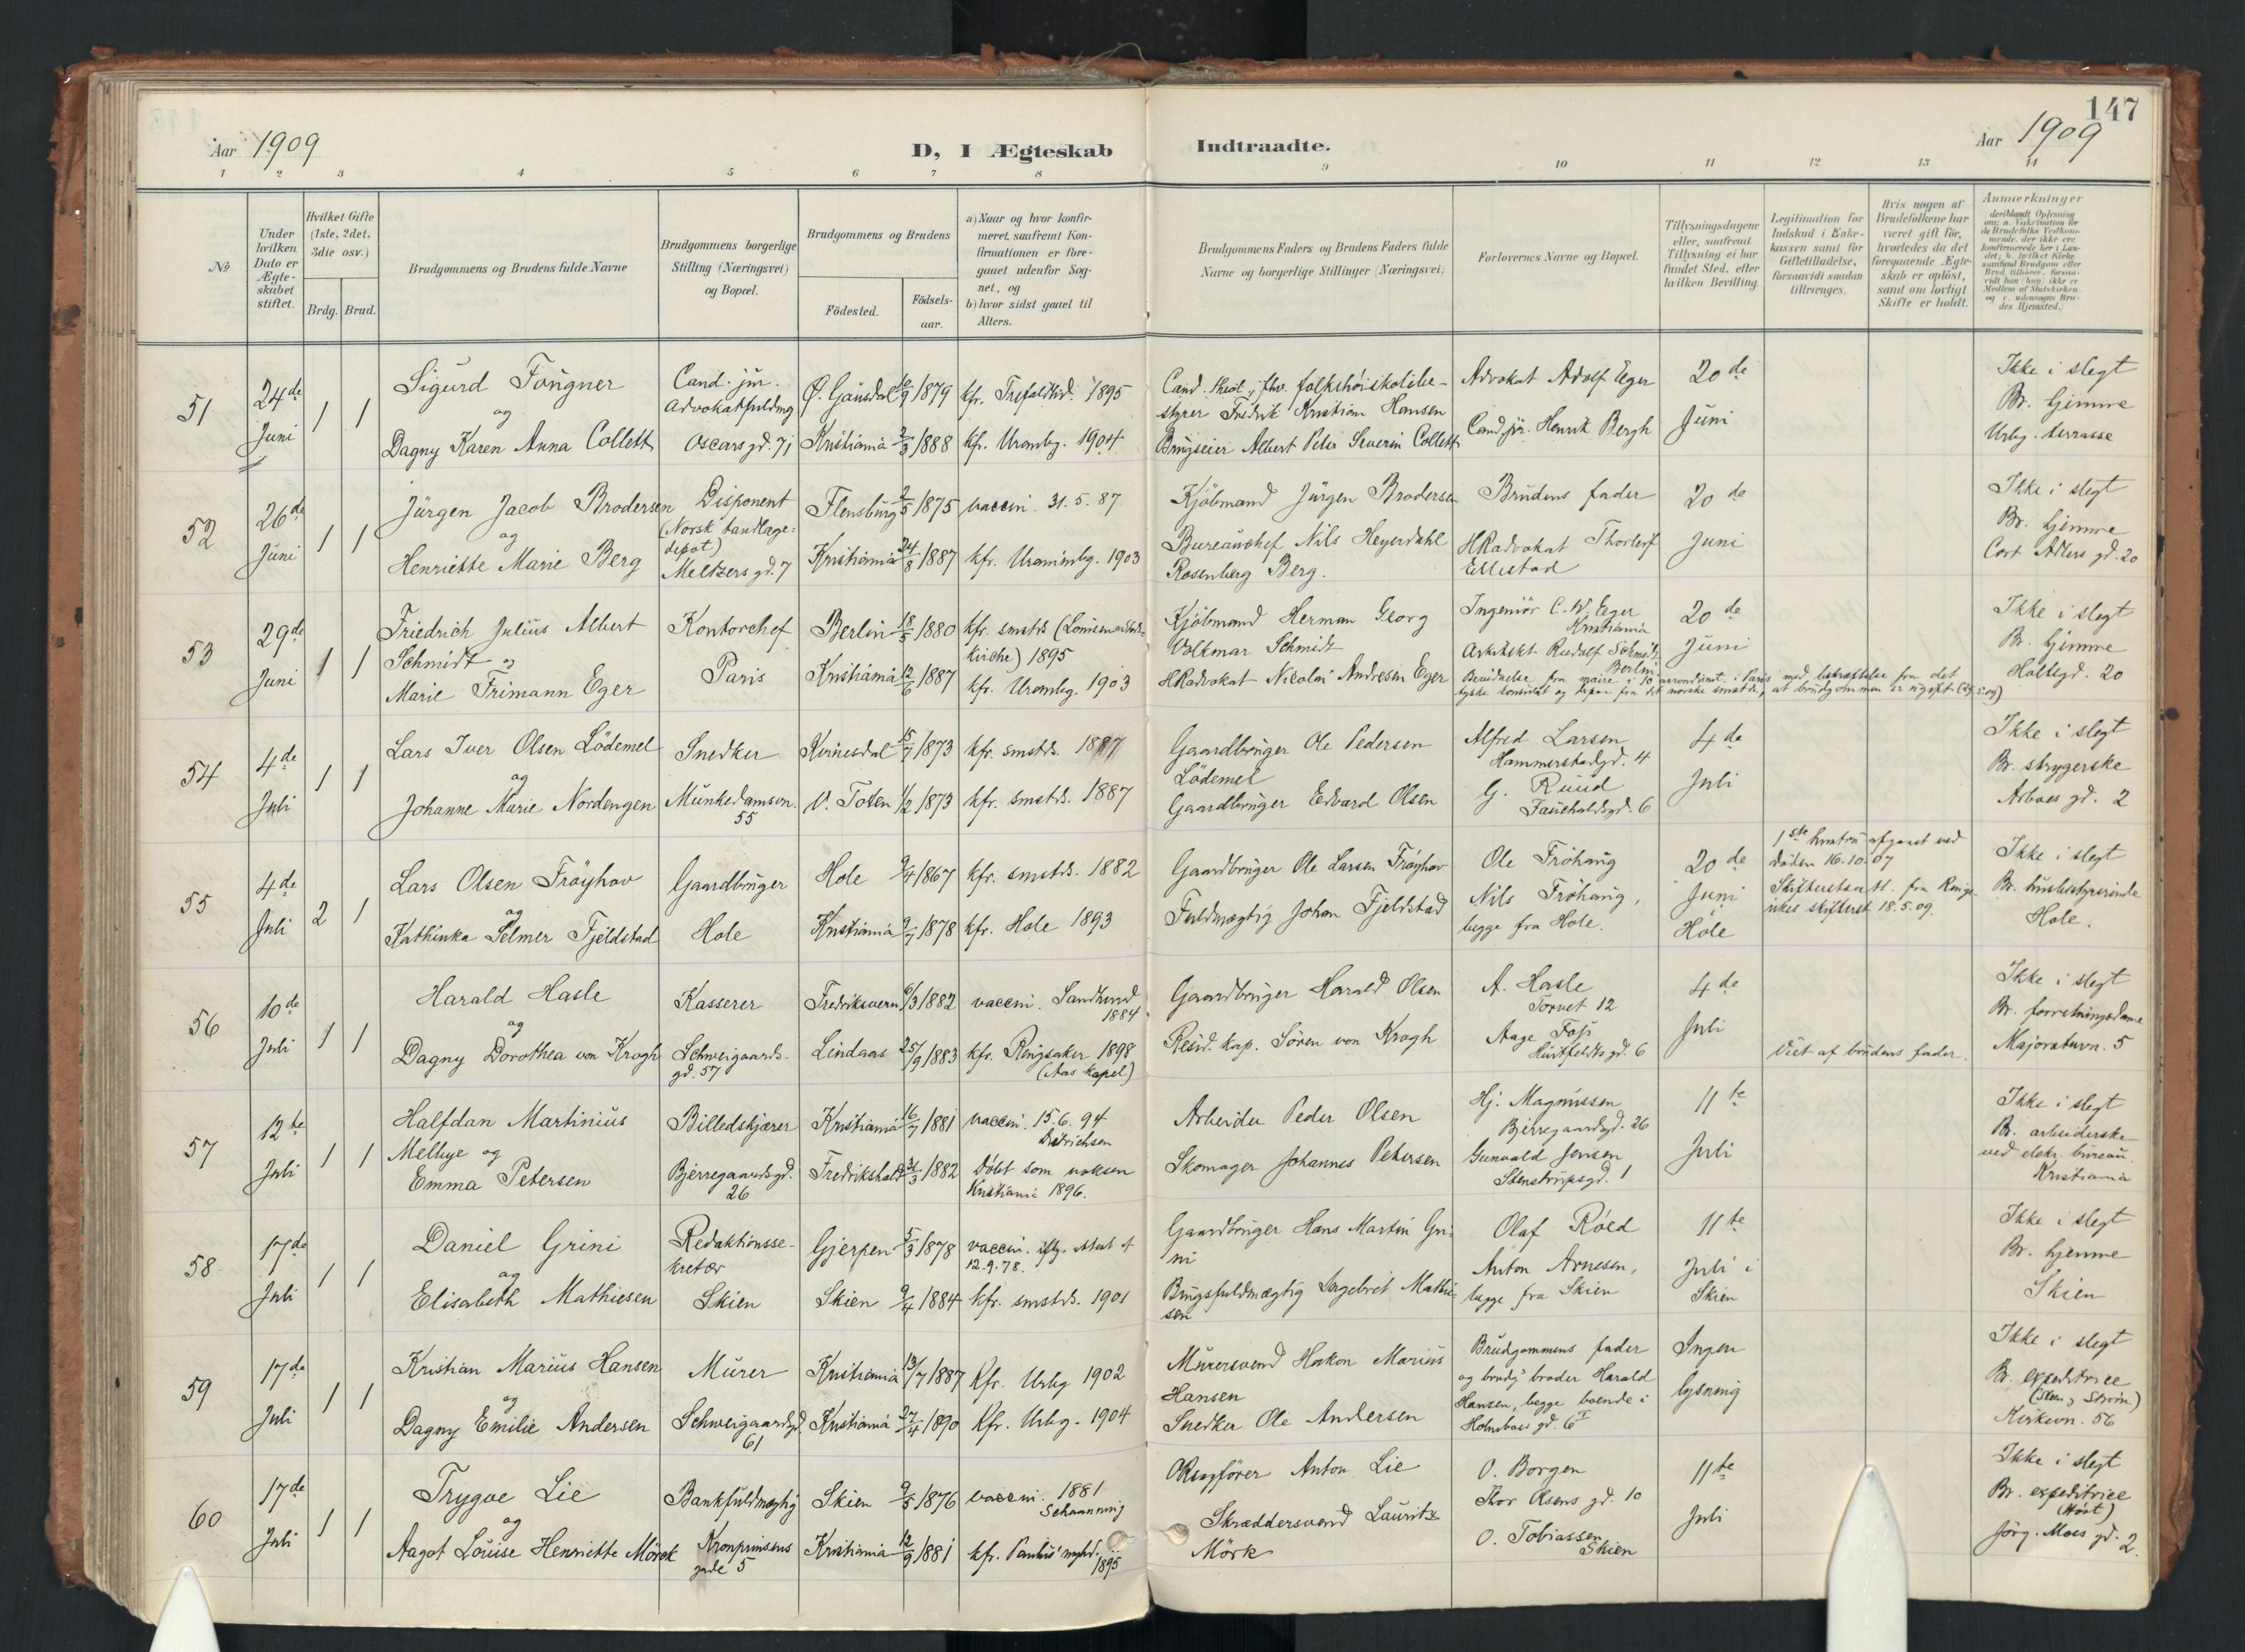 147
Aar 1909
D, I Ægteskab Indtraadte.
Aar 1909
1 2 3 4 5 6 7 8 9 10 11 12 13 14
No
Under
hvilken
Dato er
Ægte-
skabet
stiftet.
Hvilket Gifte
(1ste, 2det,
3die osv.)
Brdg. Brud.
Brudgommens og Brudens fulde Navne
Brudgommens borgerlige
Stilling (Næringsvei)
og Bopæl.
Brudgommens og Brudens
Födested.
Födsels-
aar.
a) Naar og hvor konfir-
meret, saafremt Kon-
firmationen er fore-
gaaet udenfor Sog-
net, og
b) hvor sidst gaaet til
Alters.
Brudgommens Faders og Brudens Faders fulde
Navne og borgerlige Stillinger (Næringsvei)
Forlovernes Navne og Bopæl.
Tillysningsdagene
eller, saafremt
Tillysning ei har
fundet Sted, efter
hvilken Bevilling.
Legitimation for
Indskud i Enke-
kassen samt for
Giftetilladelse,
forsaavidt saadan
tiltrænges.
Hvis nogen af
Brudefolkene har
været gift för,
hvorledes da det
foregaaende Ægte-
skab er oplöst,
samt om lovligt
Skifte er holdt.
Anmærkninger
deriblandt Oplysning
om: a. Vakcination for
de Brudefolks Vedkom-
mende, der ikke ere
konfirmerede her i Lan-
det; b. hvilket Kirke-
samfund Brudgom eller
Brud tilhörer, forsaa-
vidt han (hun) ikke er
Medlem af Statskirken
og c. udensogns Bru-
des Hjemsted.
51
24de
Juni
1 1
Sigurd Fougner
og
Dagny Karen Anna Collett
Cand. jur.
Advokatfuldmg
Oscars gd. 71
Ö. Gausdal 1879
Kristiania 2/3 1888
kfr. Trefoldhd. 1895
kfr. Uranbg. 1904
Cand. theol., fhv. folkehöiskolebe-
styrer Fredrik Kristian Hansen
Brugseier Albert Peter Severin Collett
Advokat Adolf Eger
Cand. jur. Henrik Bergh
20de
Juni
Ikke i slegt
Br. hjemme
Urbg. terrasse
52
26de
Juni
1 1
Jürgen Jacob Brodersen
og
Henriette Marie Berg
Disponent
(Norsk tandlæge-
depot)
Meltzers gd. 7
Flensburg 2/5 1875
Kristiania 24/8 1887
vaccin. 31. 5. 87
kfr. Uranienbg. 1903
Kjöbmand Jürgen Brodersen
Bureauchef Nils Heyerdahl
Rosenberg Berg.
Brudens fader
HRadvokat Thorleif
Ellestad
20de
Juni
Ikke i slegt
Br. hjemme
Cort Adlers gd. 20
53
29de
Juni
1 1
Friedrich Julius Albert
Schmidt og
Marie Frimann Eger
Kontorchef
Paris
Berlin 1880
Kristiania 12/6 1887
kfr. smstds (Louisen
kirche) 1895
kfr. Uranbg. 1903
Kjöbmand Herman Georg
Volkmar Schmidt
HRadvokat Nicolai Andresen Eger
Ingeniör C. W. Eger
Kristiania
Arkitekt Rudolf Schmidt
Berlin
20de
Juni
Bevidnelse fra maire i 10 arrondismt. i Paris med bekræftelse fra det
tyske konsulat og fra det norske smstds, at brudgommen er ugift
Ikke i slegt
Br. hjemme
Holtegd. 20
54
4de
Juli
1 1
Lars Iver Olsen Lödemel
og
Johanne Marie Nordengen
Snedker
Munkedamsvn.
55
Kvinesdal 15/7 1873
V. Toten 1/2 1873
kfr. smstds. 1887
kfr. smstds. 1887
Gaardbruger Ole Pedersen
Lödemel
Gaardbruger Edvard Olsen
Alfred Larsen
Hammerstadgd. 4
G. Ruud
Fauchaldsgd. 6
4de
Juli
Ikke i slegt
Br. strygerske
Arboes gd. 2
55
4de
Juli
2 1
Lars Olsen Fröyhov
og
Kathinka Selmer Fjeldstad
Gaardbruger
Hole
Hole 9/4 1867
Kristiania 9/7 1878
kfr. smstds. 1882
kfr. Hole 1893
Gaardbruger Ole Larsen Fröyhov
Fuldmægtig Johan Fjeldstad
Ole Fröhaug
Nils Fröhaug,
begge fra Hole.
20de
Juni
i
Hole
1ste hustru afgaaet ved
döden 16-10-07
Skifteattest fra Ringe-
rikes skifteret 18. 5. 09.
Ikke i slegt
Br. husbestyrerinde
Hole.
56
10de
Juli
1 1
Harald Hasle
og
Dagny Dorothea von Krogh
Kasserer
Schweigaards-
gd. 57
Fredriksvern 6/3 1882
Lindaas 25/9 1883
vaccin. Sandsund
1884
kfr. Ringsaker 1898
(Aas kapel)
Gaardbruger Harald Olsen
Resid. kap. Sören von Krogh
A. Hasle
Torvet 12
Aage Foss
Huitfeldts gd. 6
4de
Juli
Viet af brudens fader.
Ikke i slegt
Br. forretningsdame
Majorstuvn. 5
57
12te
Juli
1 1
Halfdan Martinius
Melbye og
Emma Petersen
Billedskjærer
Bjerregaardsgd.
26
Kristiania 16/7 1881
Fredrikshald 31/3 1882
vaccin. 15. 6. 94
Didrichsen
Döbt som voksen
Kristiania 1896.
Arbeider Peder Olsen
Skomager Johannes Petersen
Hj. Magnussen
Bjerregaardsgd. 26
Gunvald Jensen
Stenstrupsgd. 1
11te
Juli
Ikke i slegt
Br. arbeiderske
ved elektr. bureau
Kristiania
58
17de
Juli
1 1
Daniel Grini
og
Elisabeth Mathiesen
Redaktionsse-
kretær
Skien
Gjerpen 5/3 1878
Skien 9/4 1884
vaccin. iflg. attest af
12. 9. 78.
kfr. smstds. 1901
Gaardbruger Hans Martin Gri-
ni
Brugsfuldmægtig Ingebret Mathie-
sen
Olaf Röed
Anton Arnesen,
begge fra Skien
11te
Juli i
Skien
Ikke i slegt
Br. hjemme
Skien
59
17de
Juli
1 1
Kristian Marius Hansen
og
Dagny Emilie Andersen
Murer
Schweigaardsgd.
61
Kristiania 13/7 1887
Kristiania 27/4 1890
Kfr. Urbg 1902
Kfr. Urbg. 1904
Murersvend Hakon Marius
Hansen
Snedker Ole Andersen
Brudgommens fader
og brudg. broder Harald
Hansen, begge boende i
Holmboes gd. 6 I
Ingen
lysning
Ikke i slegt
Br. expeditrice
(Steen & Ström)
Kirkevn. 56
60
17de
Juli
1 1
Trygve Lie
og
Aagot Louise Henriette Mörck
Bankfuldmægtig
Kronprinsens
gade 5
Skien 9/5 1876
Kristiania 12/9 1881
vaccin. 1881
Schaanning
kfr. Paulus mghd.
1895
ORsagförer Anton Lie
Skræddersvend Lauritz
Mörk
O. Borgen
Thor Olsens gd. 10
O. Tobiassen
Skien
11te
Juli
Ikke i slegt
Br. expeditrice
(Höst)
Jörg. Moes gd. 2.